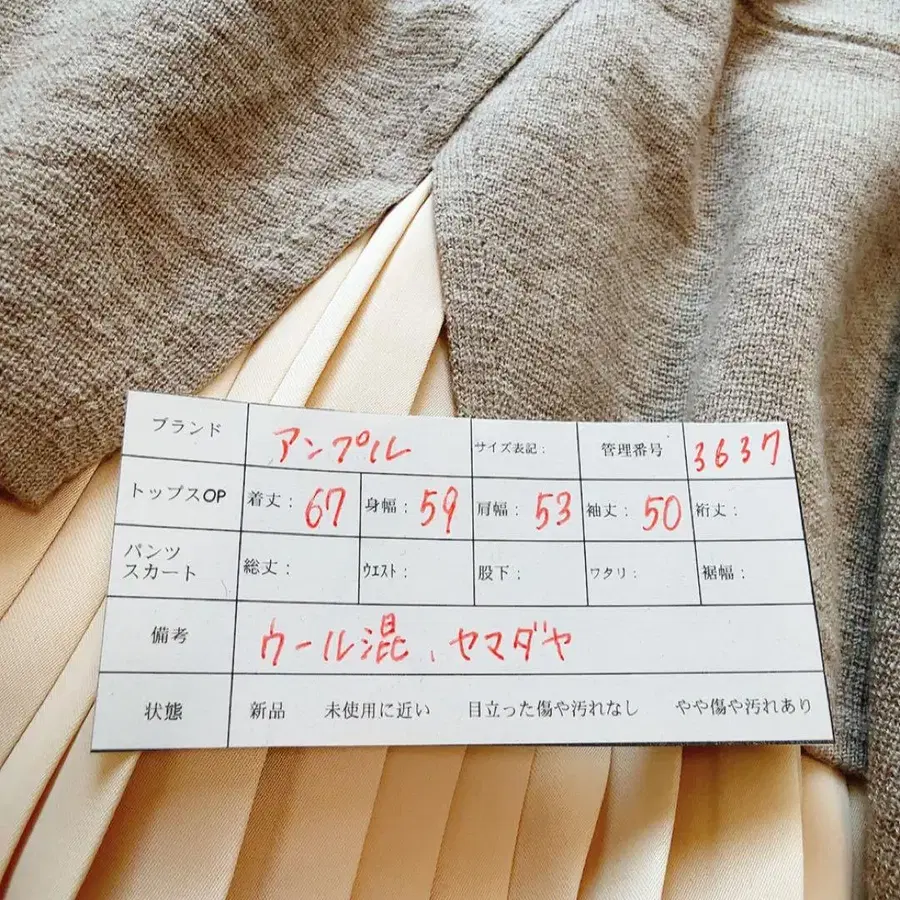 ブランド アンプル サイズ表記: 管理番号 3637
トップスOP 着丈: 67 身幅: 59 肩幅: 53 袖丈: 50 裄丈:
パンツ
スカート 総丈: ウエスト: 股下: ワタリ: 裾幅:
備考 ウール混、ヤマダヤ
状態 新品 未使用に近い 目立った傷や汚れなし やや傷や汚れあり